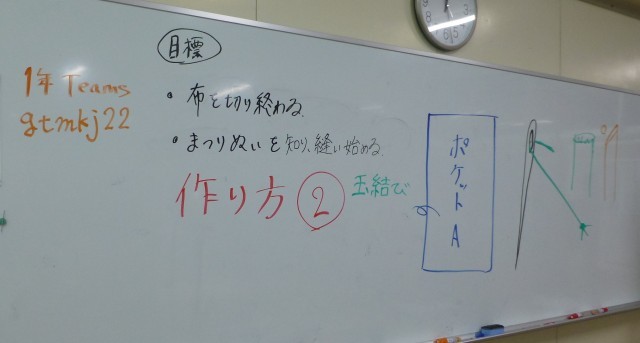 1年 Teams
gtmkj22
目標
・布を切り終わる。
・まつりぬいを知り、縫い始める。
作り方②
玉結び
ポケットA